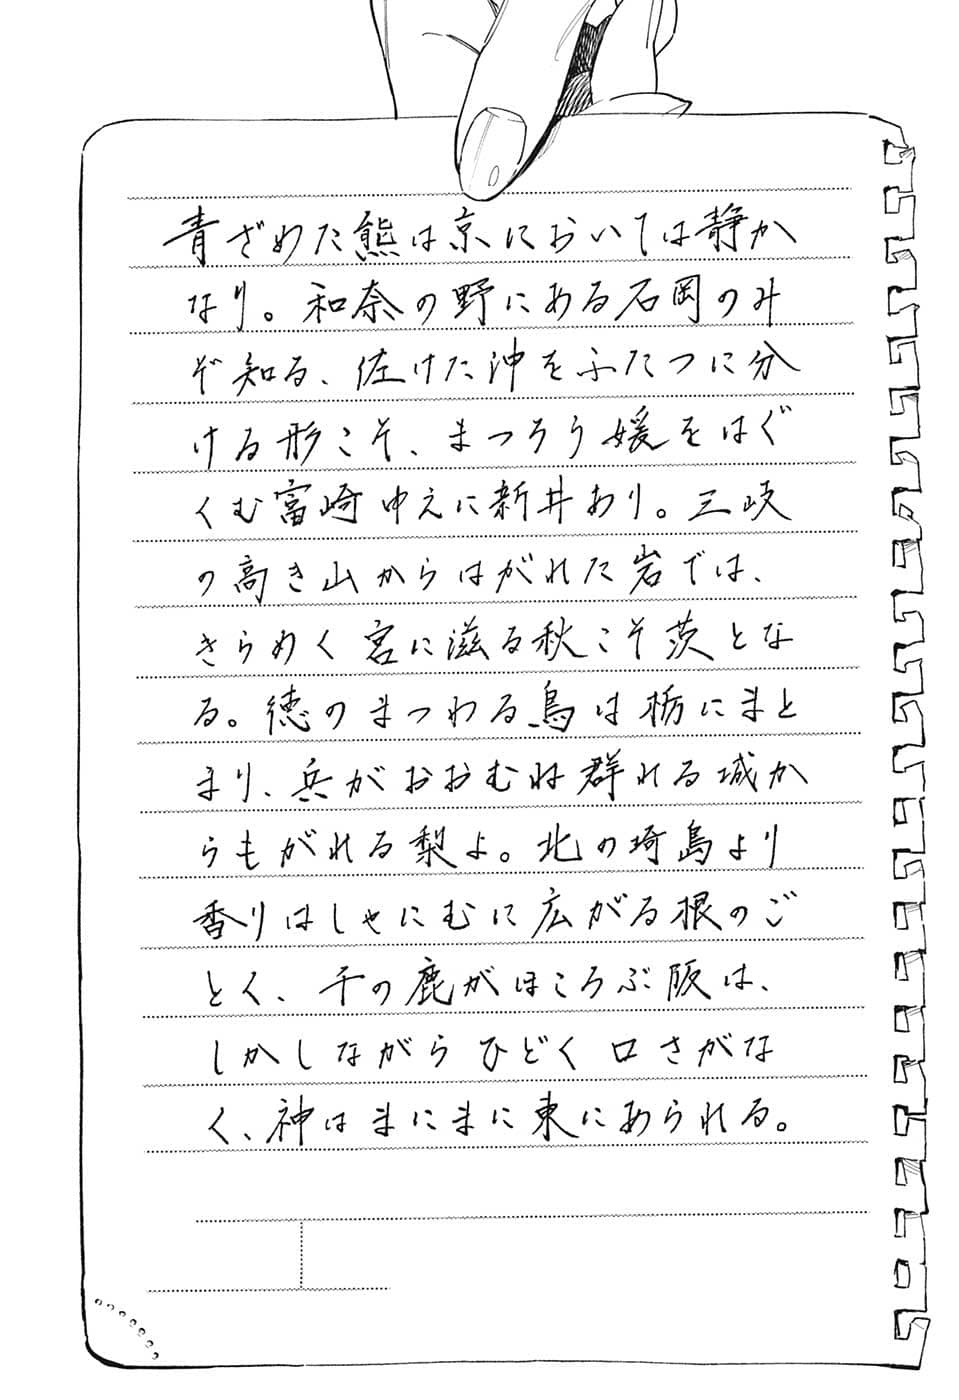 青ざめた熊は京においては静か
なり。和奈の野にある石岡のみ
ぞ知る、佐けた沖をふたつに分
ける形こそ、まつろう媛をはぐ
くむ富崎ゆえに新井あり。三岐
の高き山からはがれた岩では、
きらめく宮に滋る秋こそ茨とな
る。徳のまつわる鳥は栃にまと
まり、兵がおおむね群れる城か
らもがれる梨よ。北の埼島より
香りはしゃにむに広がる根のご
とく、千の鹿がほころぶ阪は、
しかしながらひどく口さがな
く、神はまにまに東にあられる。